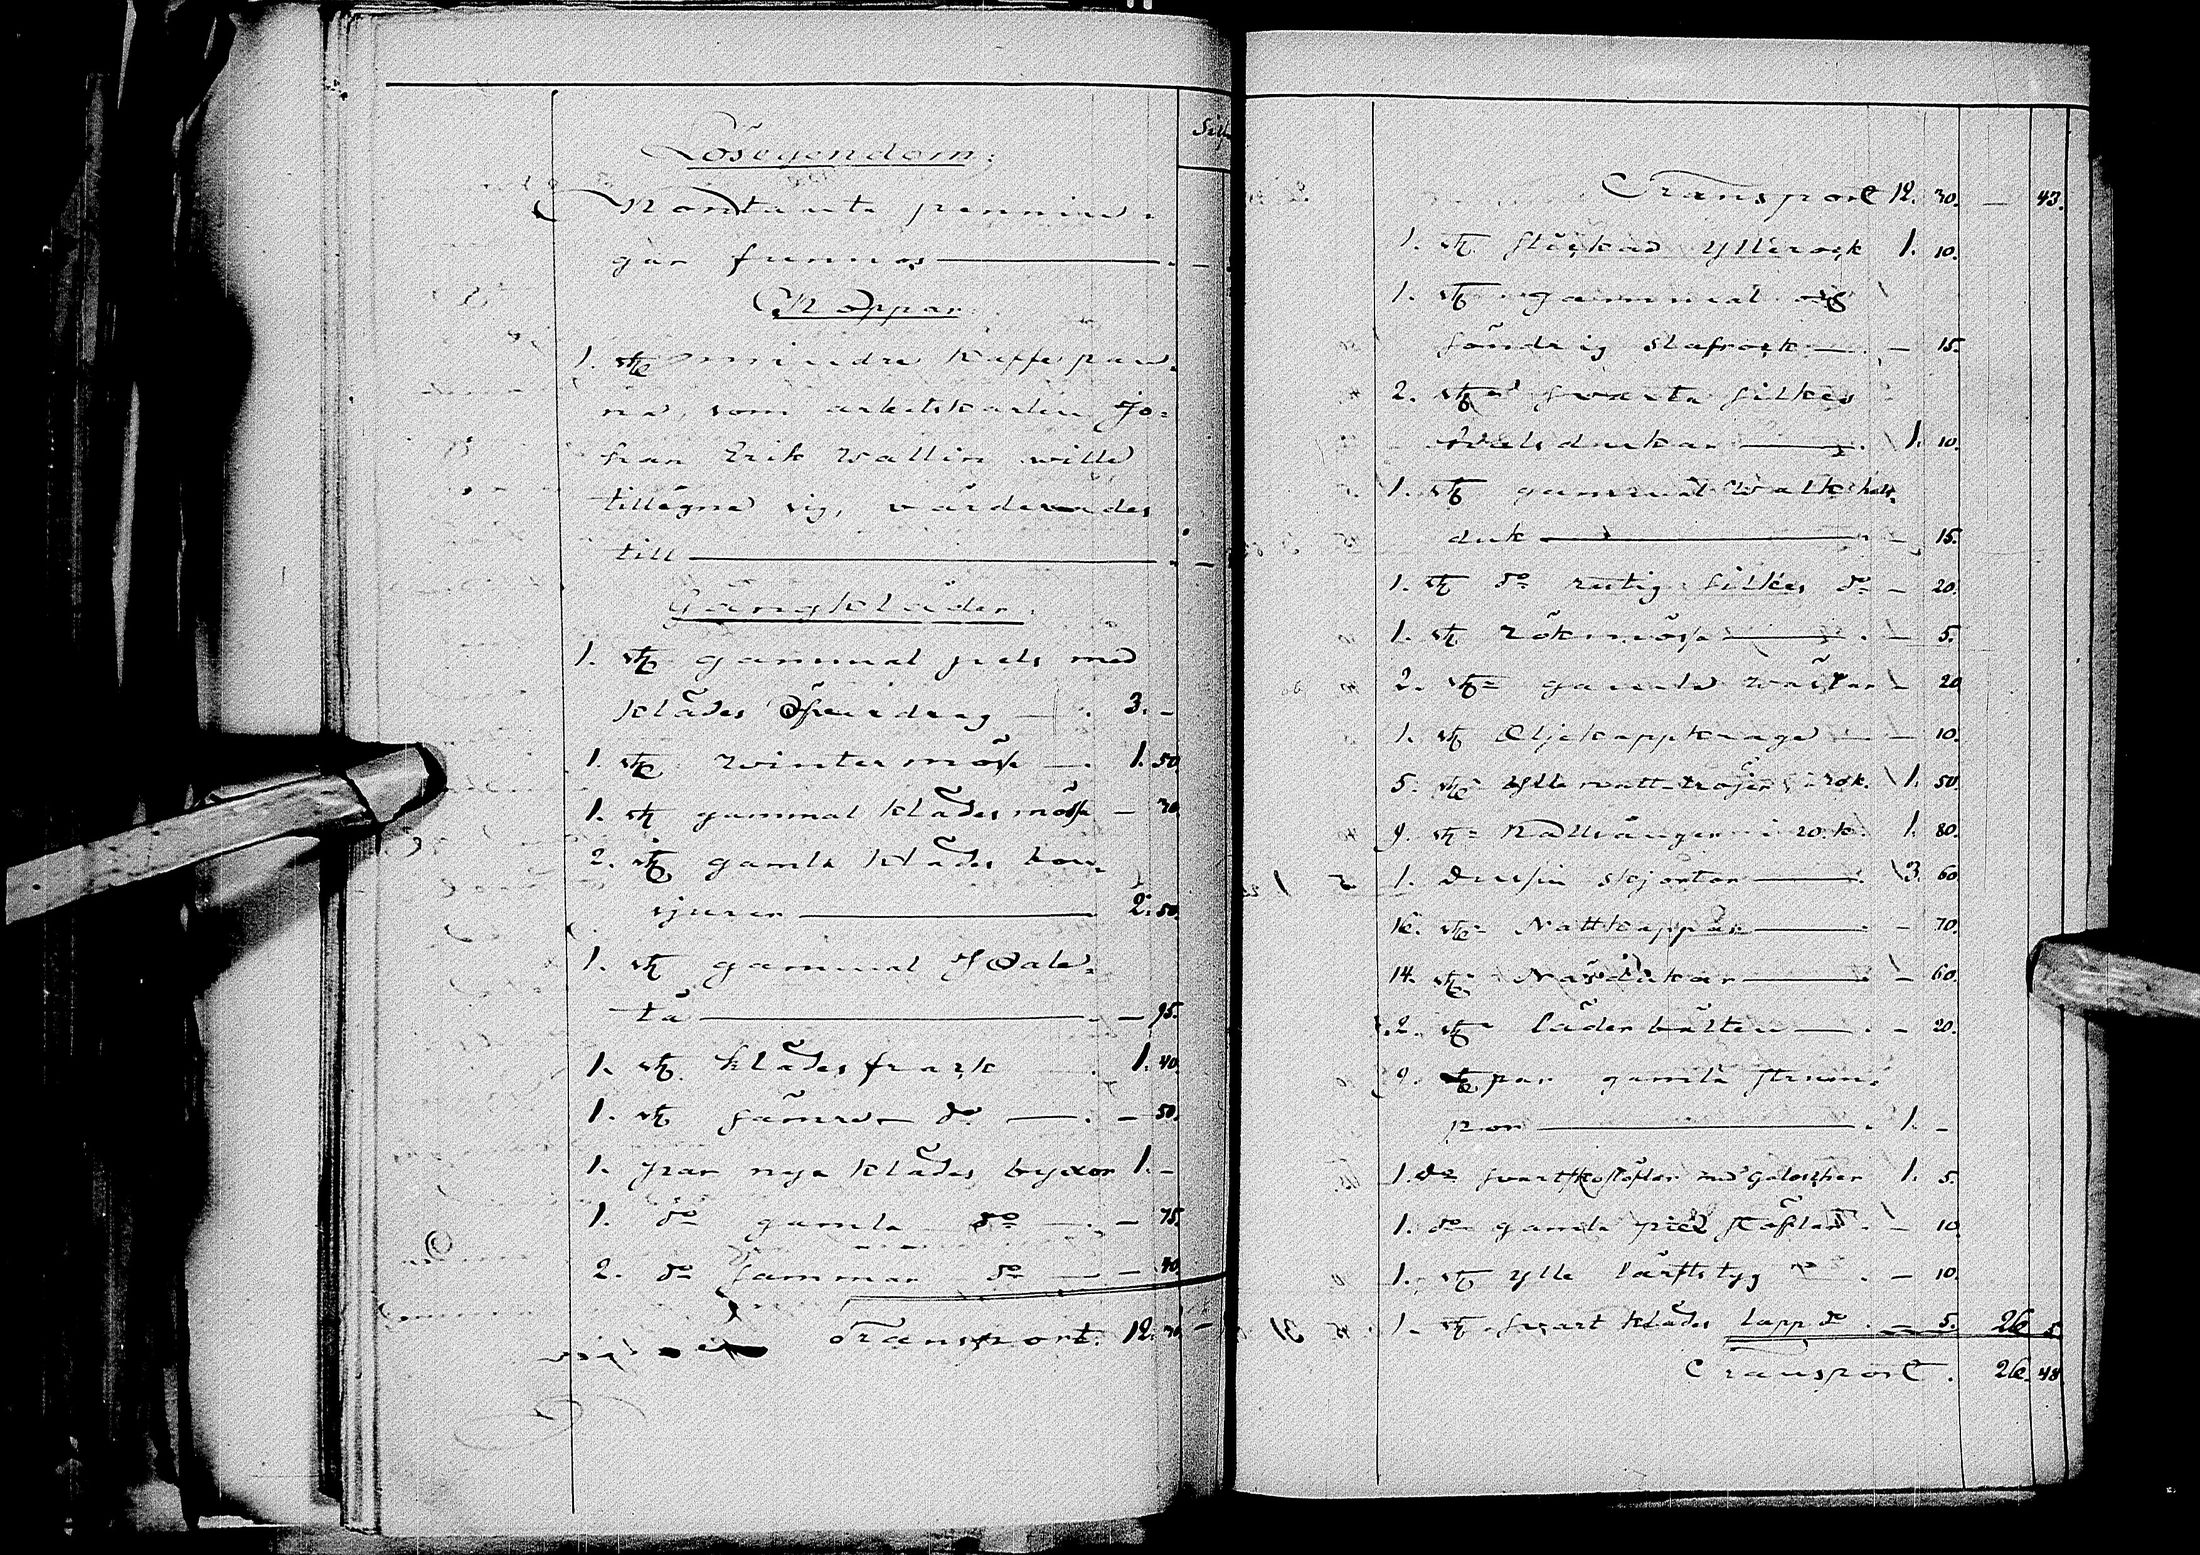 Silf
Lösegendom:
Kontanta pennin-
gar funnos — . —
Koppar
1. st mindre kaffepan-
na, som arbetskarlen Jo-
han Erik Wallin wille
tillägna sig, värderades
till — . —
Gångkläder.
1. st gammal pels med
klädes öfverdrag — . 3. —
1. st wintermössa — . 1. 50.
1. st gammal klädesmössa — 30.
2. st gamla klädes
— 2. 50.
1. st gammal
— . — 95.
1. st klädesfrack . 1. 40.
1. st sämre do — . — 50.
1. par nya klädes byxor 1. —
1. do gamla do — . — 75.
2. do sämmar do — — 40.
Transport. 12. 30. —
Transport 12. 30. — 43.
1. st ylle rock 1. 10.
1. st gammal och
söndrig slafrock — . — 15.
2. st swarta silkes
halsdukar — . 1. 10.
1. st gammal hals-
duk — . — 15.
1. st do rutig silkes do — 20.
1. st rökmössa — . — 5.
2. st gamla wästar — 20
1. st Oljekappkrage — — 10.
5. st ylle natt-tröjor i 1. 50.
9. st i 1. 80.
1. dussin skjortor — . 3. 60.
16. st Nattkappar — . — 70.
14. st Näsdukar — . — 60.
2. st läderbälten — . — 20.
9. par gamla strum-
por — . 1. —
1. do swartsko stöflor med Galoscher 1. 5.
1. do gamla stöflar . — 10.
1. st ylle lärftstyg . — 10.
1. st swart klädes lapp do . — 5. 26 5
Transport. 26. 48